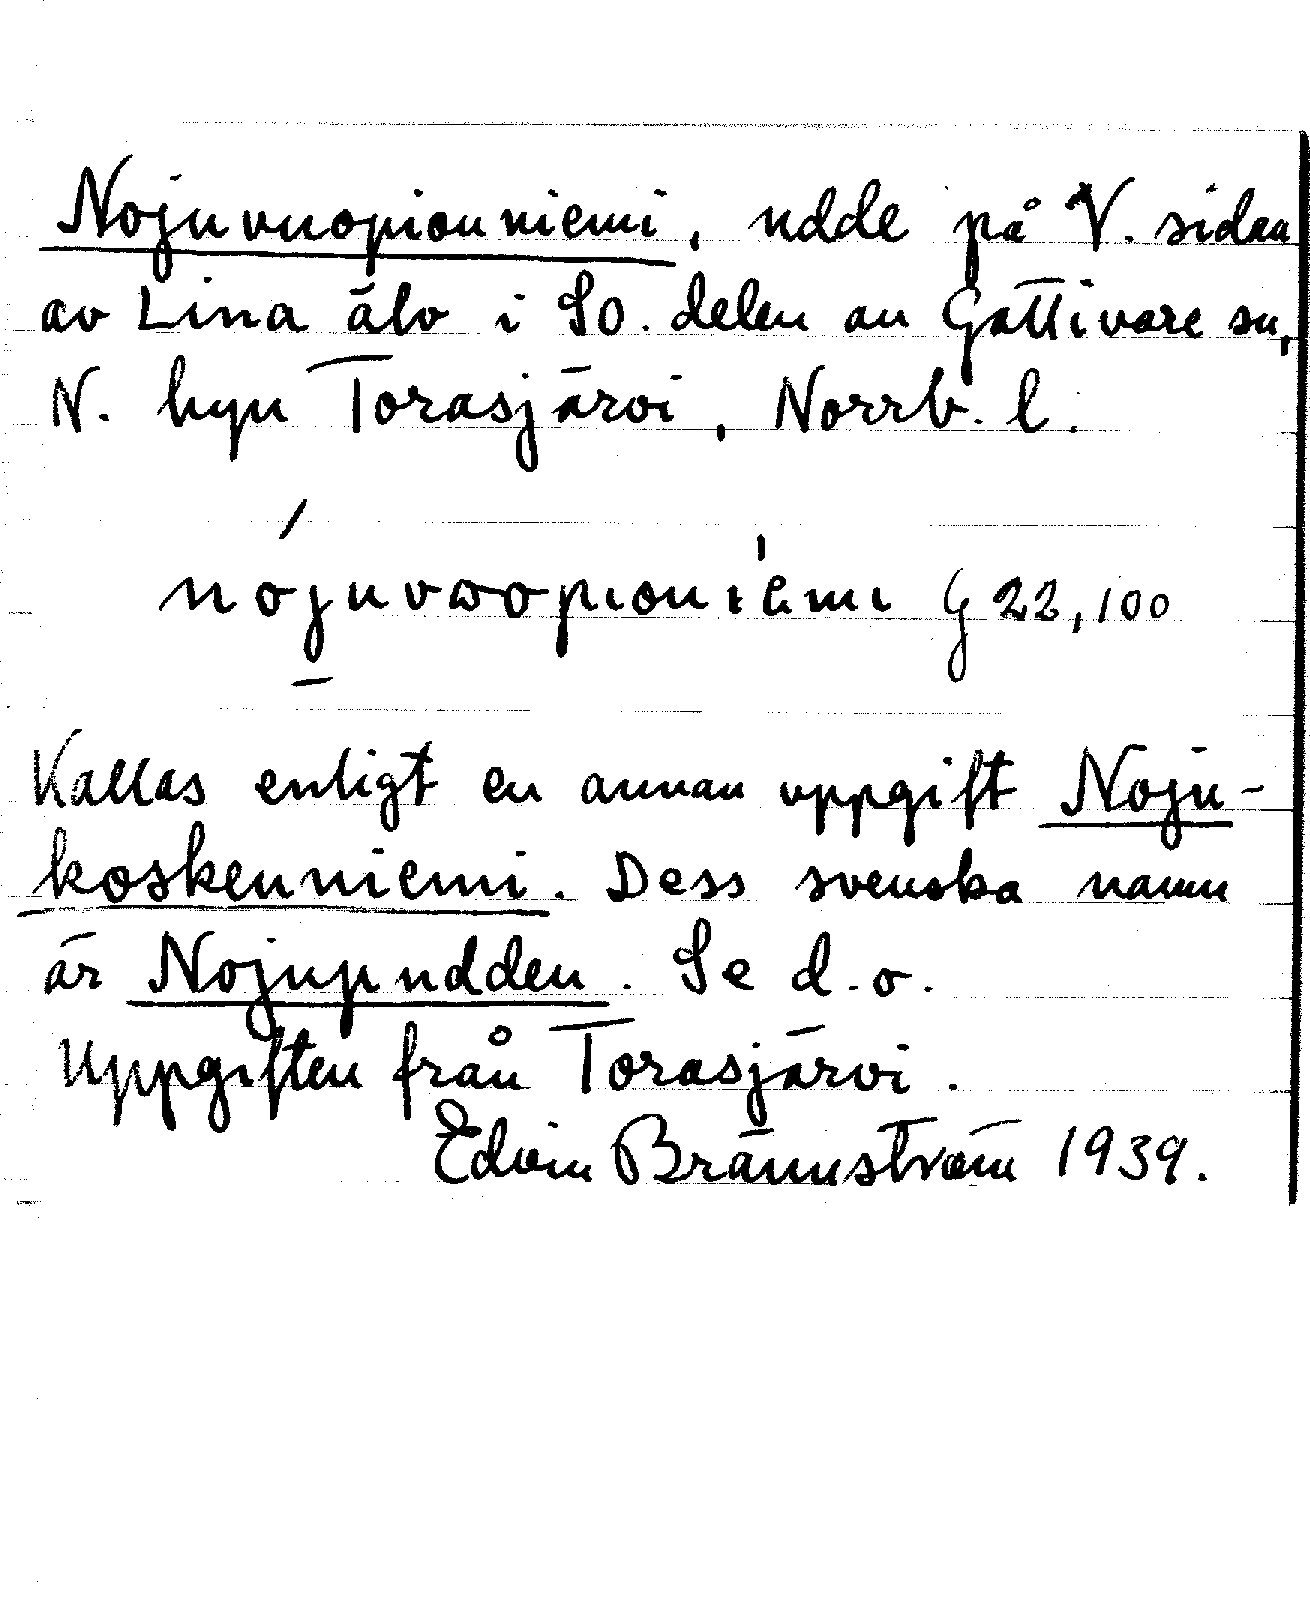 Nojuvuopionniemi, udde på V. sidan
av Lina älv i SO. delen av Gällivare sn,
N. byn Torasjärvi, Norrb. l.
G 22,100
Kallas enligt en annan uppgift Noju-
koskenniemi. Dess svenska namn
är Nojupudden. Se d.o.
Uppgiften från Torasjärvi.
Edvin Brännström 1939.